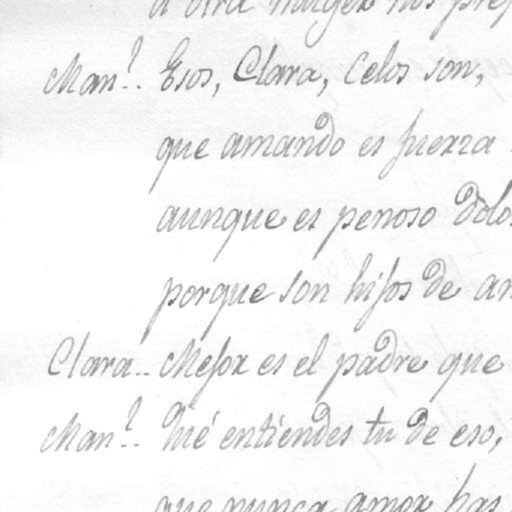 a otra muger nos pref
Man.l.. Esos, Clara, Celos son,
que amando es fuerza
aunque es penoso dolo
porque son hijos de am
Clara.. Mejor es el padre que
Man.l.. Qué entiendes tu de eso,
que nunca amor has